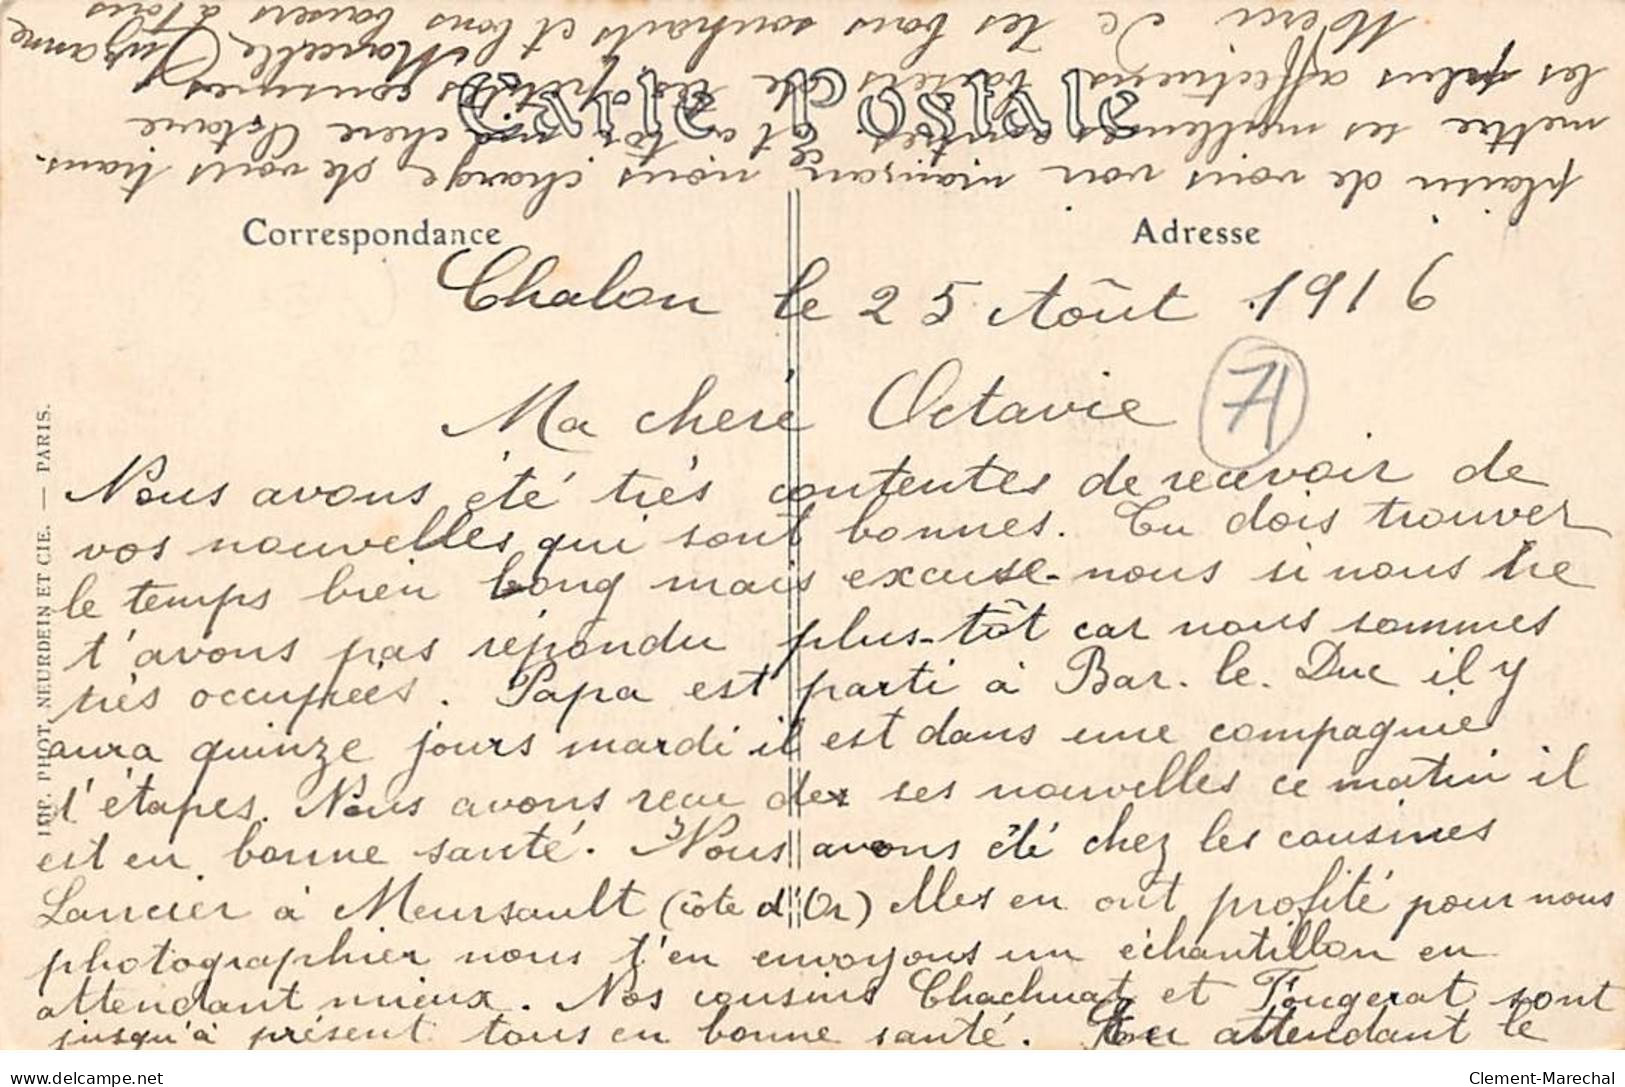 Carte Postale
Correspondance
Adresse
Chalon le 25 Août 1916
71
Ma chère Octavie
Nous avons été très contentes de recevoir de
vos nouvelles qui sont bonnes. Tu dois trouver
le temps bien long mais excuse-nous si nous ne
t'avons pas répondu plus-tôt car nous sommes
très occupées. Papa est parti à Bar-le-Duc il y
aura quinze jours mardi il est dans une compagnie
d'étapes. Nous avons reçu des ses nouvelles ce matin il
est en bonne santé. Nous avons été chez les cousines
Lancier à Meursault (côte d'Or) elles en ont profité pour nous
photographier nous t'en envoyons un échantillon en
attendant mieux. Nos cousins Chachuat et Fougerat sont
jusqu'à présent tous en bonne santé. En attendant le
plaisir de vous voir maman nous charge de vous trans-
mettre ses meilleures amitiés et à toi ma chère Octavie
les plus affectueux baisers de tes petites cousines
Marcelle Suzanne
Merci de tes bons souhaits et bons baisers à tous
IMP. PHOT. NEURDEIN ET CIE. — PARIS.
Clement-Marechal
delcampe.net